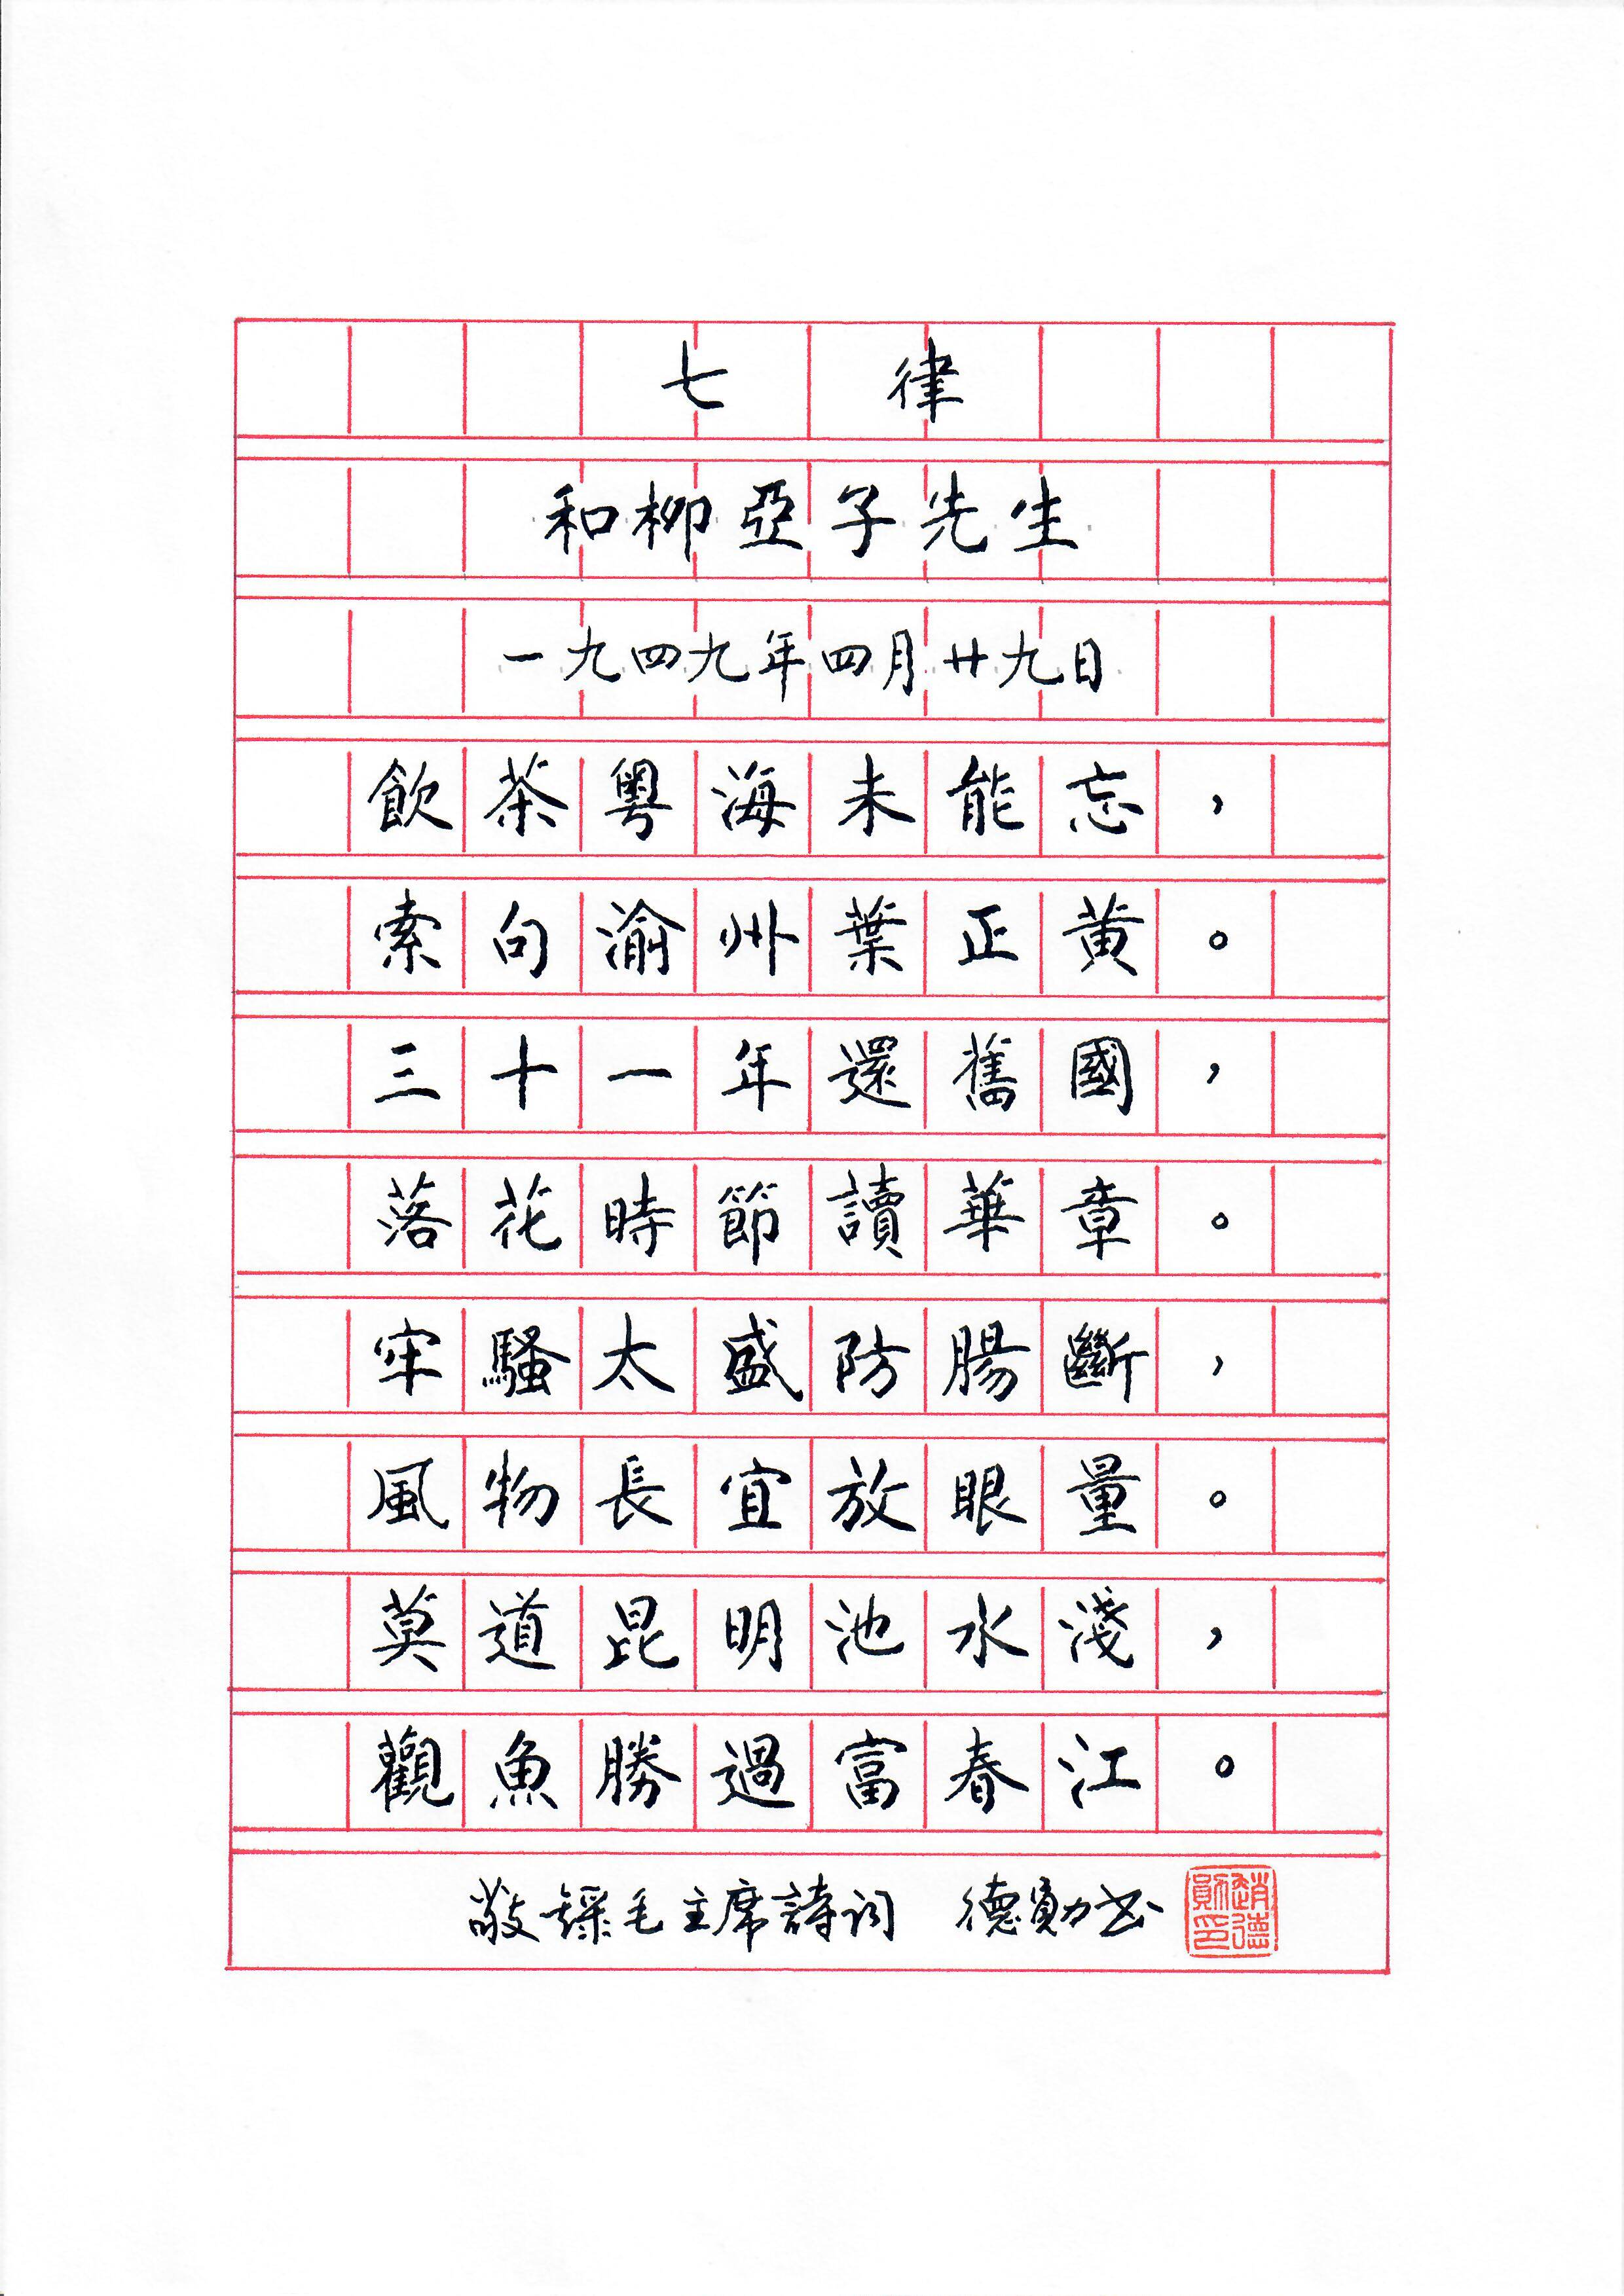 七律
和柳亞子先生
一九四九年四月廿九日
飲茶粵海未能忘，
索句渝州葉正黃。
三十一年還舊國，
落花時節讀華章。
牢騷太盛防腸斷，
風物長宜放眼量。
莫道昆明池水淺，
觀魚勝過富春江。
敬錄毛主席詩词 德勛书
趙德勛印